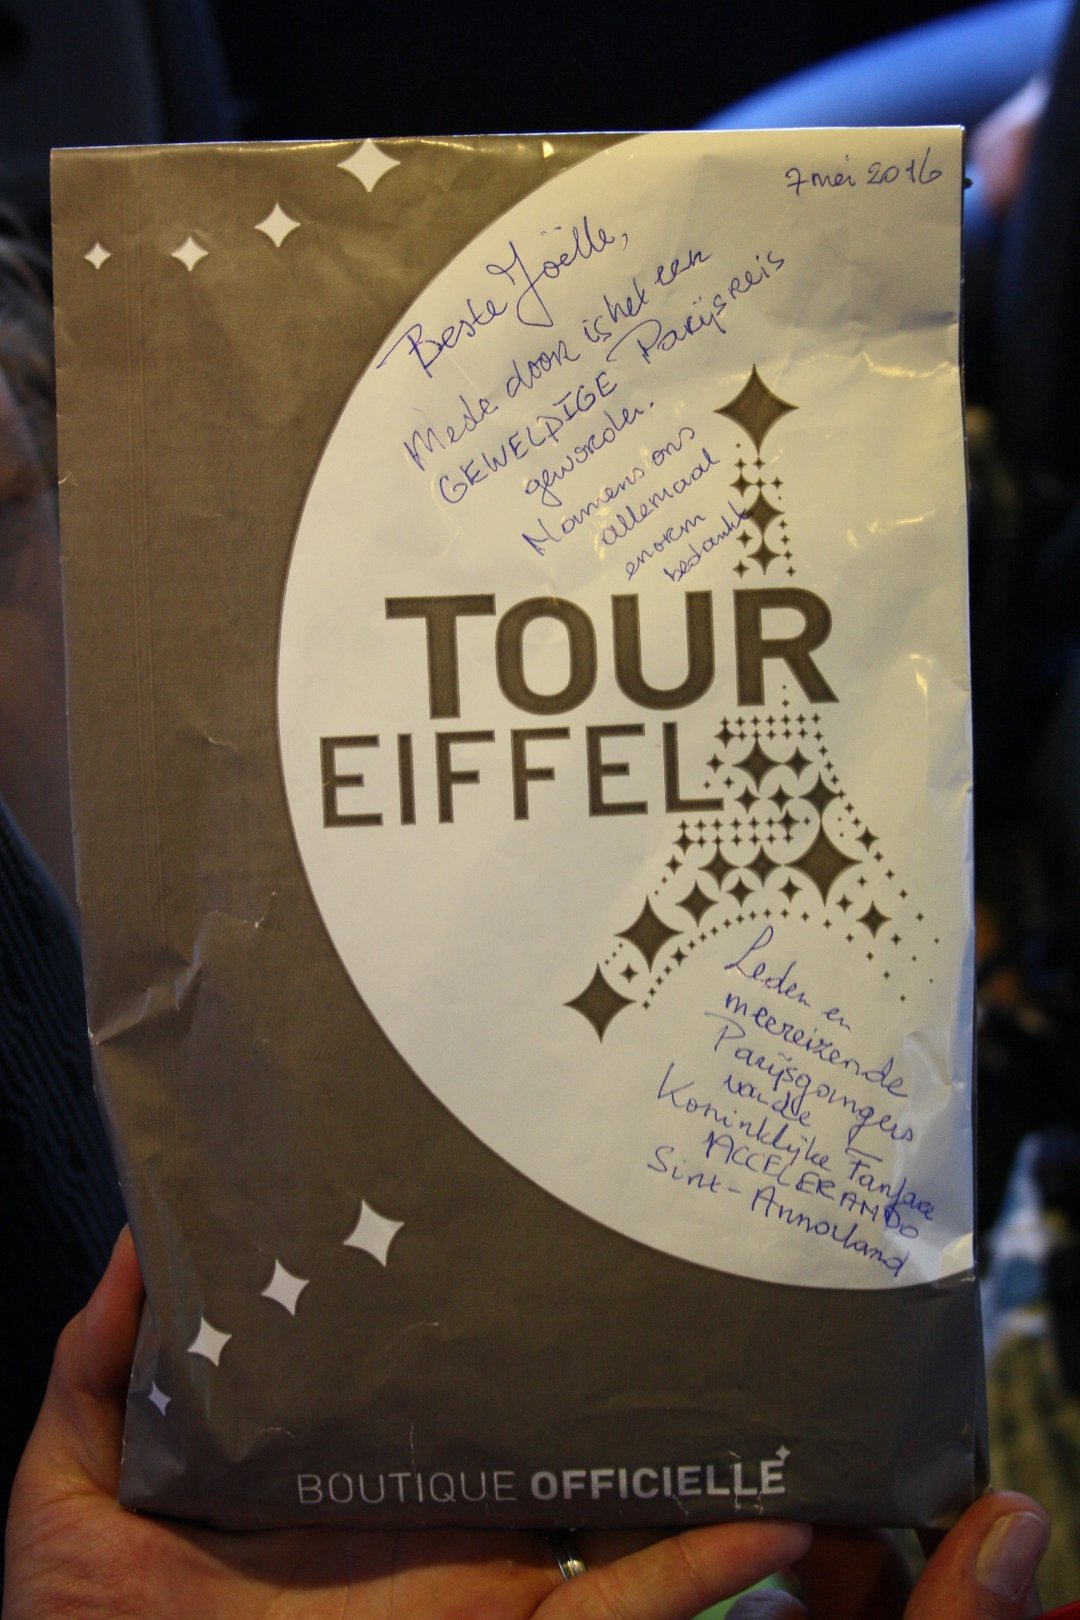 7 mei 2016
Beste Joëlle,
Mede door is het een
GEWELDIGE Parijsreis
geworden.
Namens ons
allemaal
enorm
bedankt
TOUR
EIFFEL
Leden en
meereizende
Parijsgangers
van de
Koninklijke Fanfare
ACCELERANDO
Sint-Annaland
BOUTIQUE OFFICIELLE